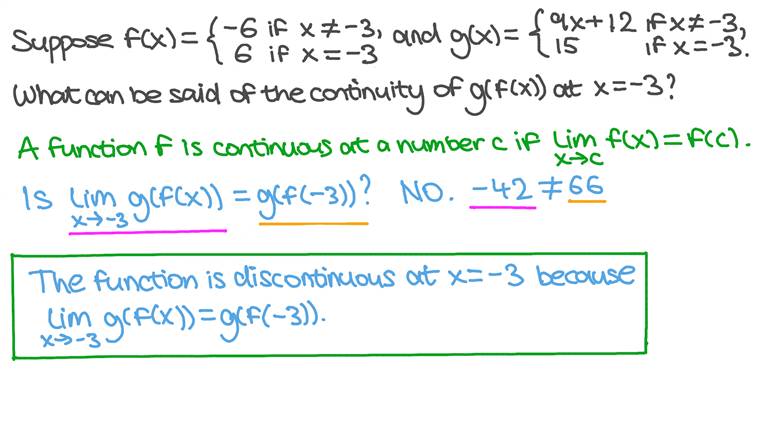 Suppose f(x) = { -6 if x ≠ -3, 6 if x = -3 and g(x) = { 9x+12 if x ≠ -3, 15 if x = -3.
What can be said of the continuity of g(f(x)) at x = -3?
A function f is continuous at a number c if lim x→c f(x) = f(c).
Is lim x→-3 g(f(x)) = g(f(-3))? NO. -42 ≠ 66
The function is discontinuous at x = -3 because
lim x→-3 g(f(x)) = g(f(-3)).